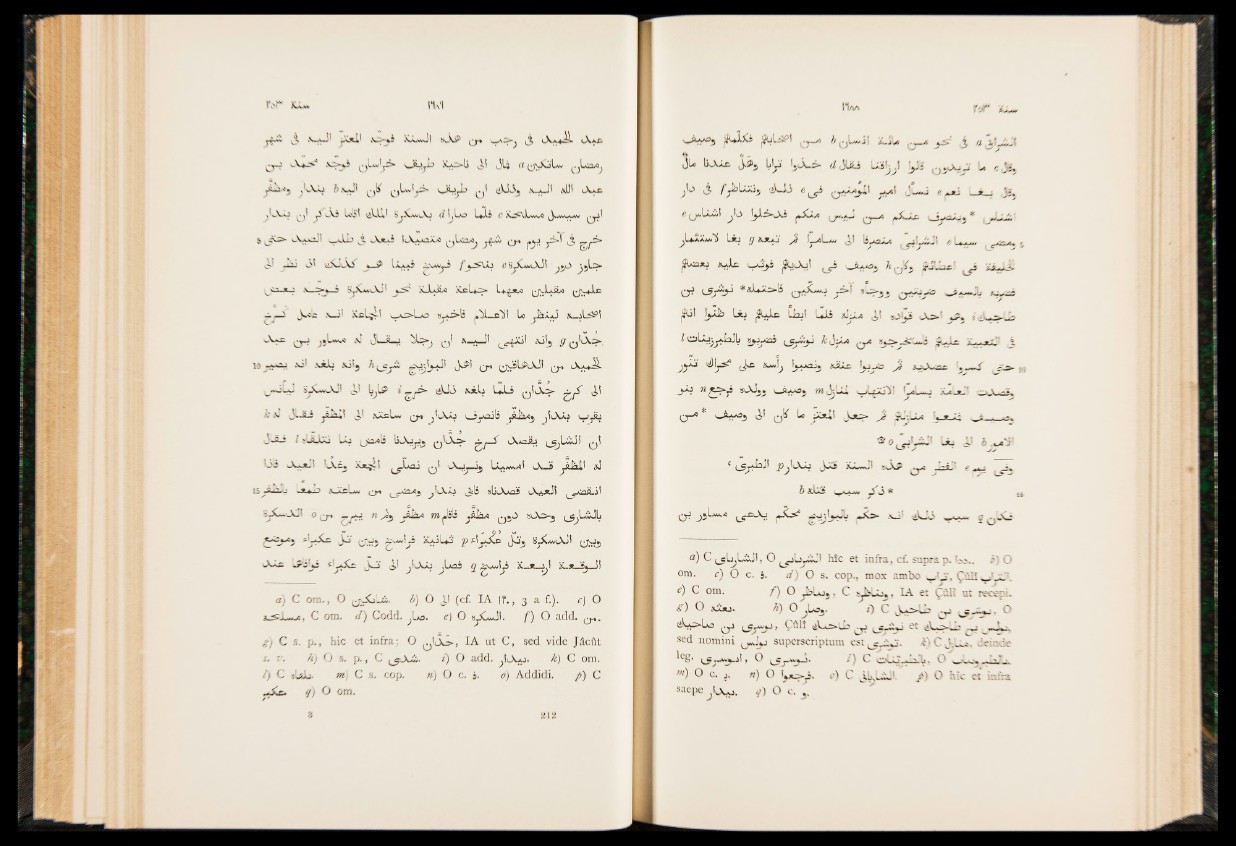 ١٦٨٨ سنة ٢٥٣
الشرابيّ a في نحو من مائة انسان b من اصحابهم فكلّمهم وصيف
وقال c ما تريدون قالوا ارزاقنا فقال d خذوا ترابا وهل عندنا مال
وقال بغا نعم e نسأل امير المؤمنين في e ذلك ونتناظر f في دار
اشناس *وينصرف عنكم من ليس منكم فدخلوا دار اشناس e
5 ومضى سيما e الشرابيّ منصرفا الى سامرّا ثم تبعه g بغا لاستئمار
الخليفة في اعطائهم وكان h وصيف في ايديهم فوثب عليه بعضهم
فضربه بالسيف ضربتين ووجأه آخر بسكّين فاحتمله* نوشرى بن
طاجبك i وهو احد قوّاده الى منزله فلمّا ابطأ عليهم بغا ظنّوا انهم
في التعبية عليهم فاستخرجوه من منزل k نوشرى فضربوه بالطبرزينات l
10 حتى كسروا عضديه ثم ضربوا عنقه ونصبوا رأسه على محراك تنّور
وقصدت العامّة بسامرّا الانتهاب لمنازل m وصيف وولده فرجع n بنو
وصيف فمنعوا منازلهم ثم جعل المعتزّ ما كان الى وصيف *من
الامور b الى بغا الشرابيّ o ۞
وفى يوم e الفطر من هذه السنة قتل بندار p الطبرىّ،
15 *ذكر سبب قتله b
فكان q سبب ذلك انه حكم بالبوازيج محكّم يدعى مساور بن
a) C الشاربانى, O الشربانى hîc et infra, cf. supra p. b) O
om. c) O c. ف. d) O s. cop., mox ambo تراب, Çûlî التراب.
e) C om. f) O وتساظر, C وتناظره, IA et Çûlî ut recepi.
g) O معه. h) O وصار. i) C نوشرى بن طاحبك, O
sed nomini نوشر superscriptum est نوشرى. k) C منازل, deinde
leg. l) C بالطبرزينات, O
m) O c. ب. n) O فرجعوا. o) C p) O hîc et infra
saepe ديدار. q) O c. و.
سنة ٢٥٣ ١٦٨٩
عبد الحميد في رجب من هذه السنة فوجّه المعتزّ اليه في شهر
رمضان ساتكين a قال الى ناحية طريف خراسان فوجّه محمد بن
عبد الله اليه وذلك ان طريف خراسان كان اليه b بندار ومظفّر
ابن سيسل مسلحة c فلمّا صار d بدسكرة الملك اقاما فذكر ان بندار
5 خرج في آخر يوم من شهر رمضان متصيّدا فبعد في طلب الصيد حتى
جاوز دور الدسكرة e بنحو f فرسخ فبينا هو كذلك اذ نظر الى
علمين مقبلين معهما جماعة مقبلة نحو الدسكرة فوجّه بعض
اصحابه لينظر ما الاعلام فاخبره صاحب الجماعة انه عامل كرخ
جُدّان g وانه انتهى اليه ان رجلا يقال له مساور بن عبد
10 الحميد من الدهاقين من اهل البوازيج شرى h وانه بلغه انه يصير
الى كرخ جُدّان فلمّا بلغه ذلك خرج i هاربا الى الدسكرة ليأنس
بقرب بندار ومظفّر فانصرف بندار من ساعته الى المظفّر فقال له k
ان الشارى يقصد كرخ جُدّان ويريدنا فامض بنا نتلقّاه l فقال
له المظفّر قد امسينا ونريد ان نصلّى الجمعة وغدا العيد فاذا
15 انقضى العيد قصدناه فابى بندار ومضى من ساعته طمعا بالظفر
بالشارى وحده دون مظفّر فاقام m مظفّر ولم n يبرح o من الدسكرة
وبين الدسكرة وتلّ عُكْبَراء p ثمانية فراسخ وبين تلّ عكبراء وموضع
الوقعة اربعة فراسخ q فصار بندار الى تلّ عكبراء فوافاها عند
a) C om., O شاتكين. b) O الى (cf. IA ١٢٠, 3 a f.). c) O
مسلحه, C om. d) Codd. صار. e) O الدسكره. f) O add. من.
g) C s. p., hîc et infra; O جدان, IA ut C, sed vide Jâcût
s. v. h) O s. p., C شدى. i) O add. بندار. k) C om.
l) C بلقاه. m) C s. cop. n) O c. ف. o) Addidi. p) C
عكبر q) O om.
3 212